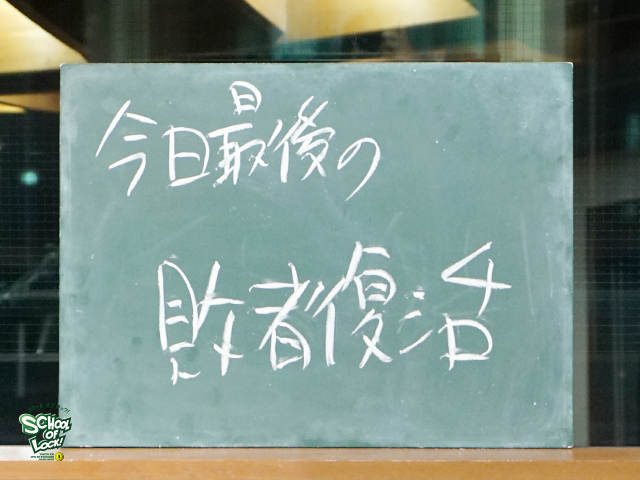 今日最後の
敗者復活
SCHOOL
OF
LOCK!